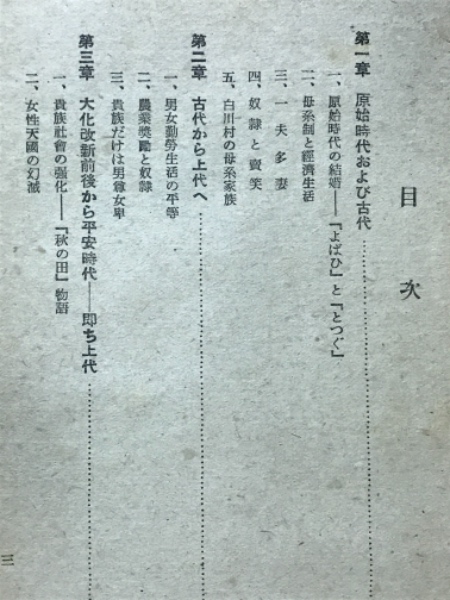 目次
第一章 原始時代および古代
一、原始時代の結婚――『よばひ』と『とつぐ』
二、母系制と經濟生活
三、一夫多妻
四、奴隷と賣笑
五、白川村の母系家族
第二章 古代から上代へ
一、男女勤勞生活の平等
二、農業奬勵と奴隷
三、貴族だけは男尊女卑
第三章 大化改新前後から平安時代――即ち上代
一、貴族社會の强化――『秋の田』物語
二、女性天國の幻滅
三